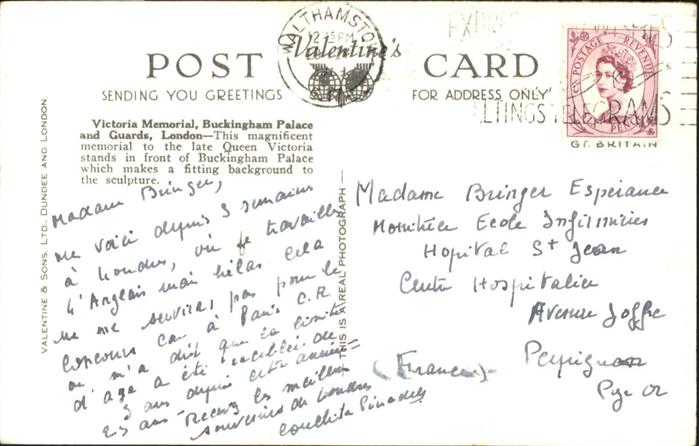 WALTHAMSTOW
12 15 PM
POST CARD
Valentine's
SENDING YOU GREETINGS
FOR ADDRESS ONLY
TELEGRAMS
POSTAGE REVENUE
GT. BRITAIN
Victoria Memorial, Buckingham Palace
and Guards, London—This magnificent
memorial to the late Queen Victoria
stands in front of Buckingham Palace
which makes a fitting background to
the sculpture.
VALENTINE & SONS. LTD., DUNDEE AND LONDON.
THIS IS A REAL PHOTOGRAPH
Madame Bringer,
me voici depuis 3 semaines
à Londres, où je travaille
l'Anglais mais hélas cela
ne me servira pas pour le
concours car à Paris C.R
on m'a dit que la limite
d'age a été reculée de
3 ans depuis cette année
25 ans. Recevez les meilleurs
souvenirs de Londres
Conchita
Madame Bringer Espérance
Monitrice Ecole Infirmières
Hopital St Jean
Centre Hospitalier
Avenue Joffre
Perpignan
Pyr Or
(France)